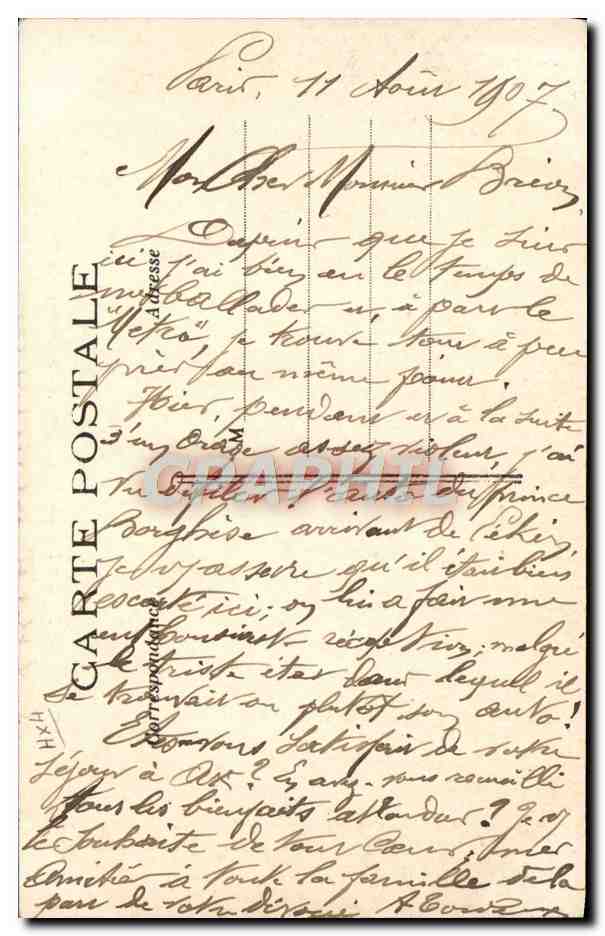 Paris, 11 Août 1907.
Mon Cher Monsieur
Depuis que je suis
ici j'ai bien eu le temps de
me ballader et, à part le
"Métro", je trouve tout à peu
près au même point.
Hier, pendant et à la suite
d'un orage assez violent j'ai
vu défiler l'auto du prince
Borghèse arrivant de Pékin
Je vs assure qu'il était bien
escorté ici; on lui a fait une
enthousiaste réception; malgré
le triste état dans lequel il
se trouvait ou plutôt son auto!
Etes-vous satisfait de votre
séjour à Ax? En avez-vous recueilli
tous les bienfaits attendus? Je vs
le souhaite de tout cœur; mes
amitiés à toute la famille de la
part de votre dévoué
CARTE POSTALE
Correspondance
Adresse
M
HXH
CPAPHIL